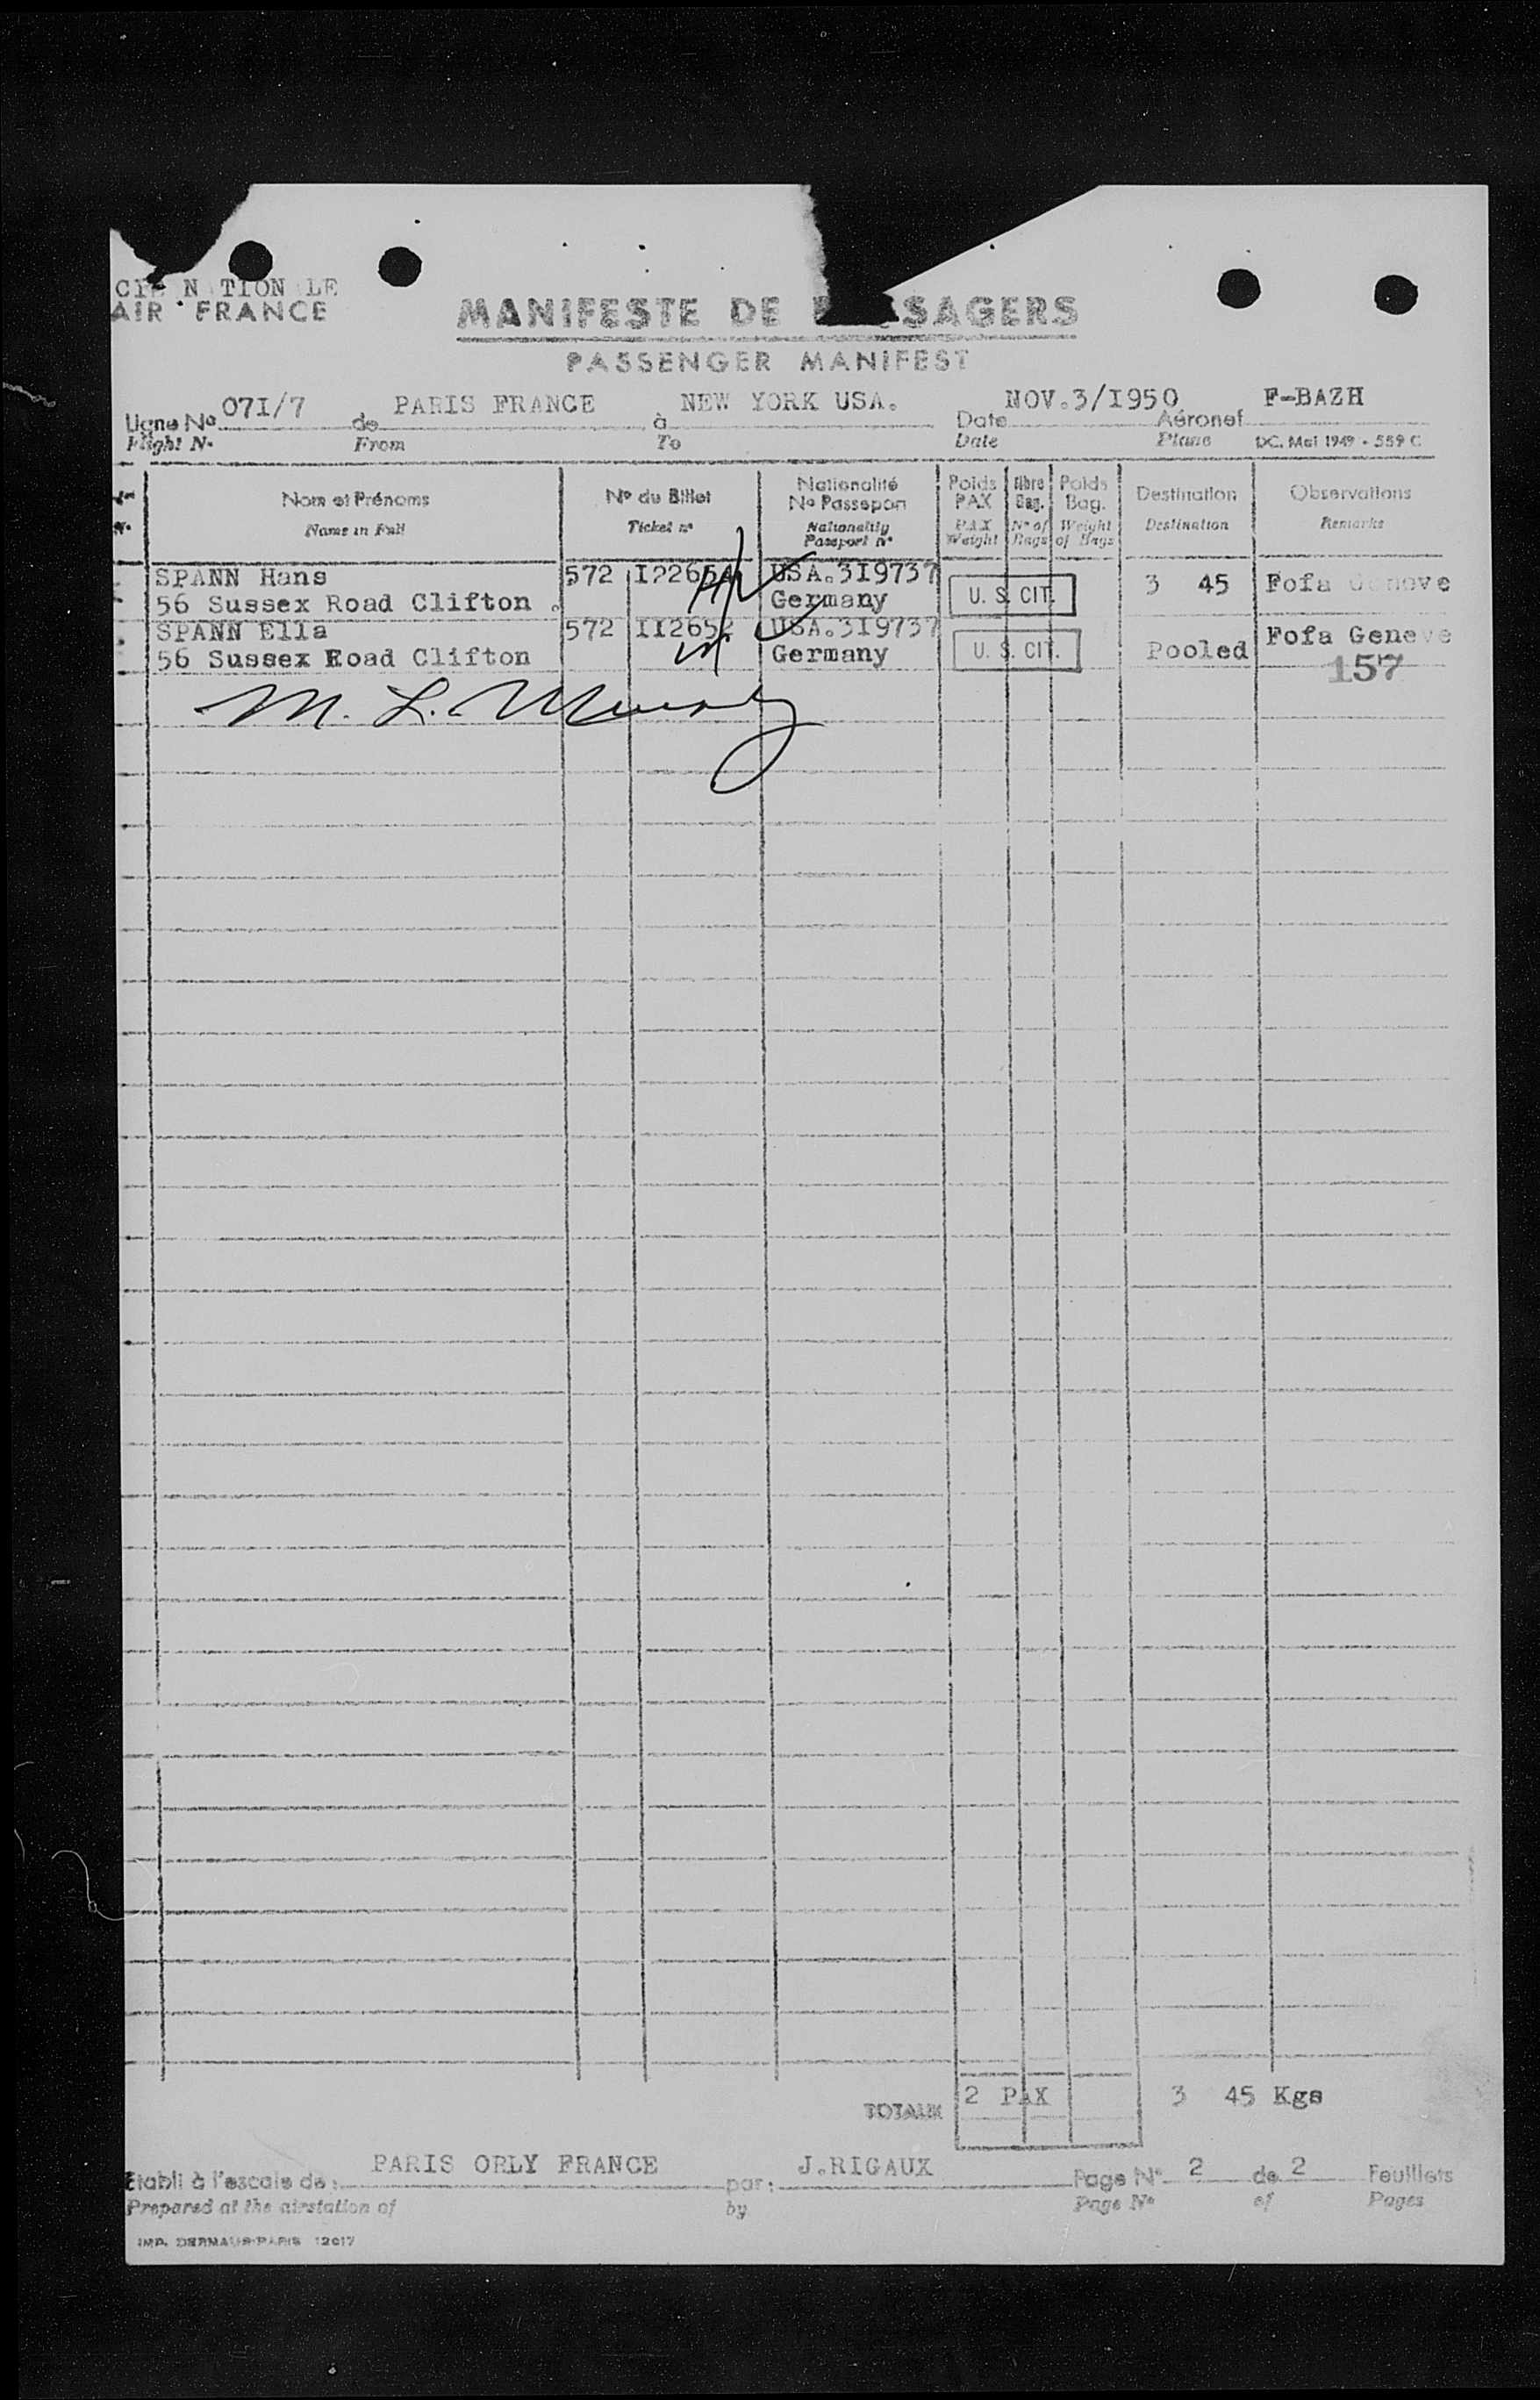 CIE N TION LE
AIR FRANCE
MANIFESTE DE P SSAGERS
PASSENGER MANIFEST
Ligne No 071/7 de PARIS FRANCE à NEW YORK USA. Date NOV.3/1950 Aéronef F-BAZH
Flight No From To Date Plane DC. Mai 1949 - 559 C
Nom et Prénoms No du Billet Nationalité No Passeport Poids PAX Nbre Bag. Poids Bag. Destination Observations
Name in Full Ticket no Nationality Passport no PAX Weight No of Bags Weight of Bags Destination Remarks
SPANN Hans 572 I22654 USA.3I9737 3 45 Fofa Geneve
56 Sussex Road Clifton . Germany U. S. CIT.
SPANN Ella 572 II2652 USA.3I9737 Fofa Geneve
56 Sussex Road Clifton Germany U. S. CIT. Pooled 157
M. L. Murphy
TOTAUX 2 PAX 3 45 Kgs
Etabli à l'escale de : PARIS ORLY FRANCE par : J.RIGAUX Page No 2 de 2 Feuillets
Prepared at the airstation of by Page No of Pages
IMP. DERMAUR-PARIS 12017